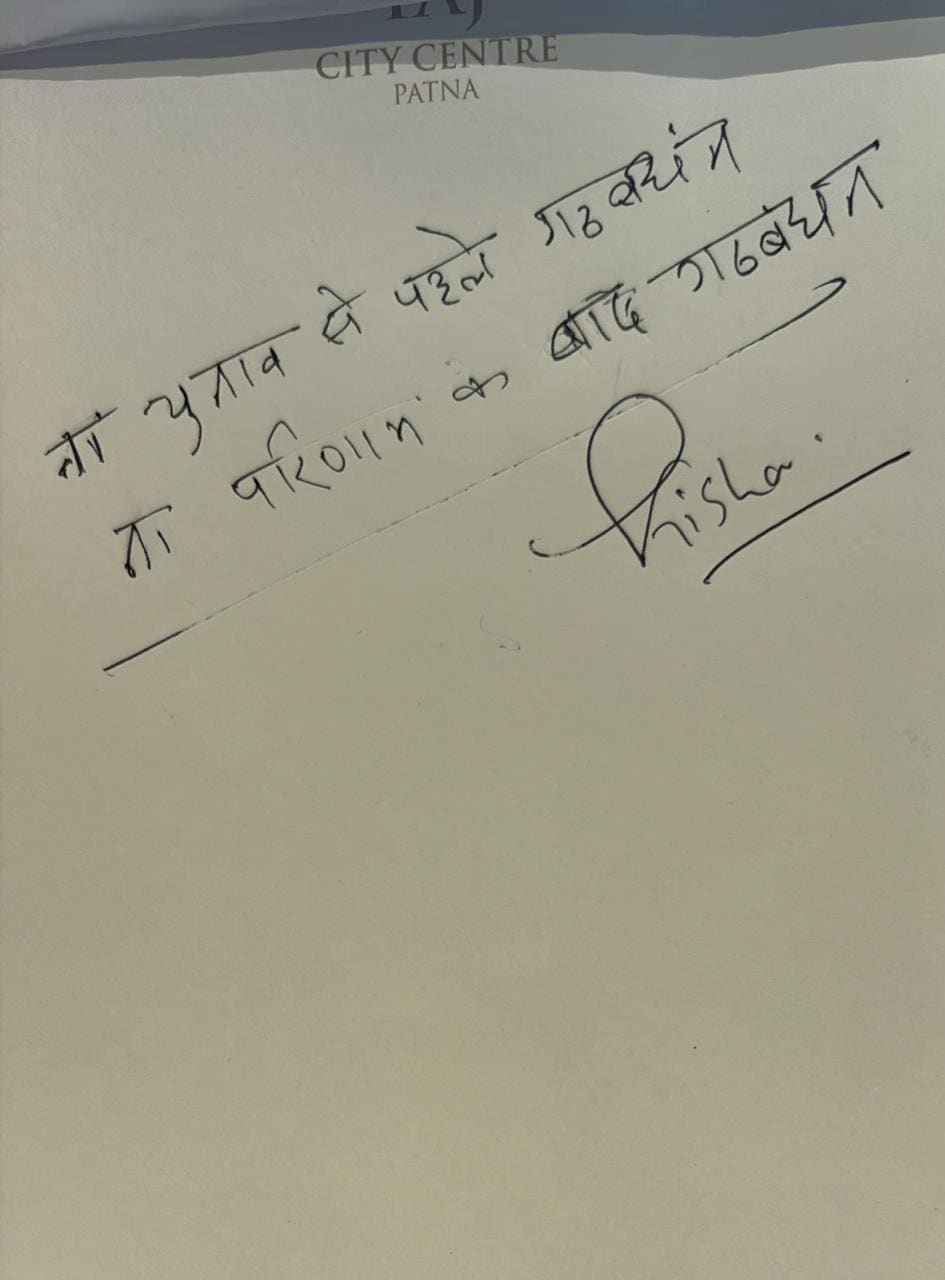 TAJ
CITY CENTRE
PATNA
ना चुनाव से पहले गठबधंन
ना परिणाम के बाद गठबंधन